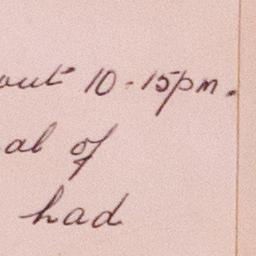 out 10-15pm.
al of
had